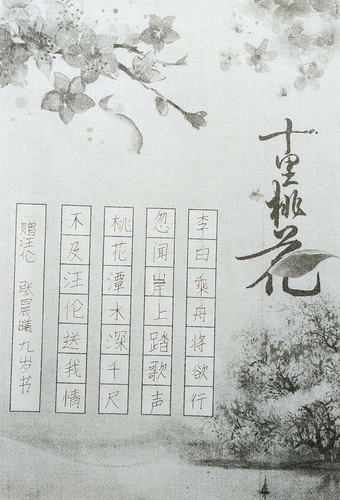 十里桃花
李白乘舟将欲行
忽闻岸上踏歌声
桃花潭水深千尺
不及汪伦送我情
赠汪伦 张晨曦九岁书